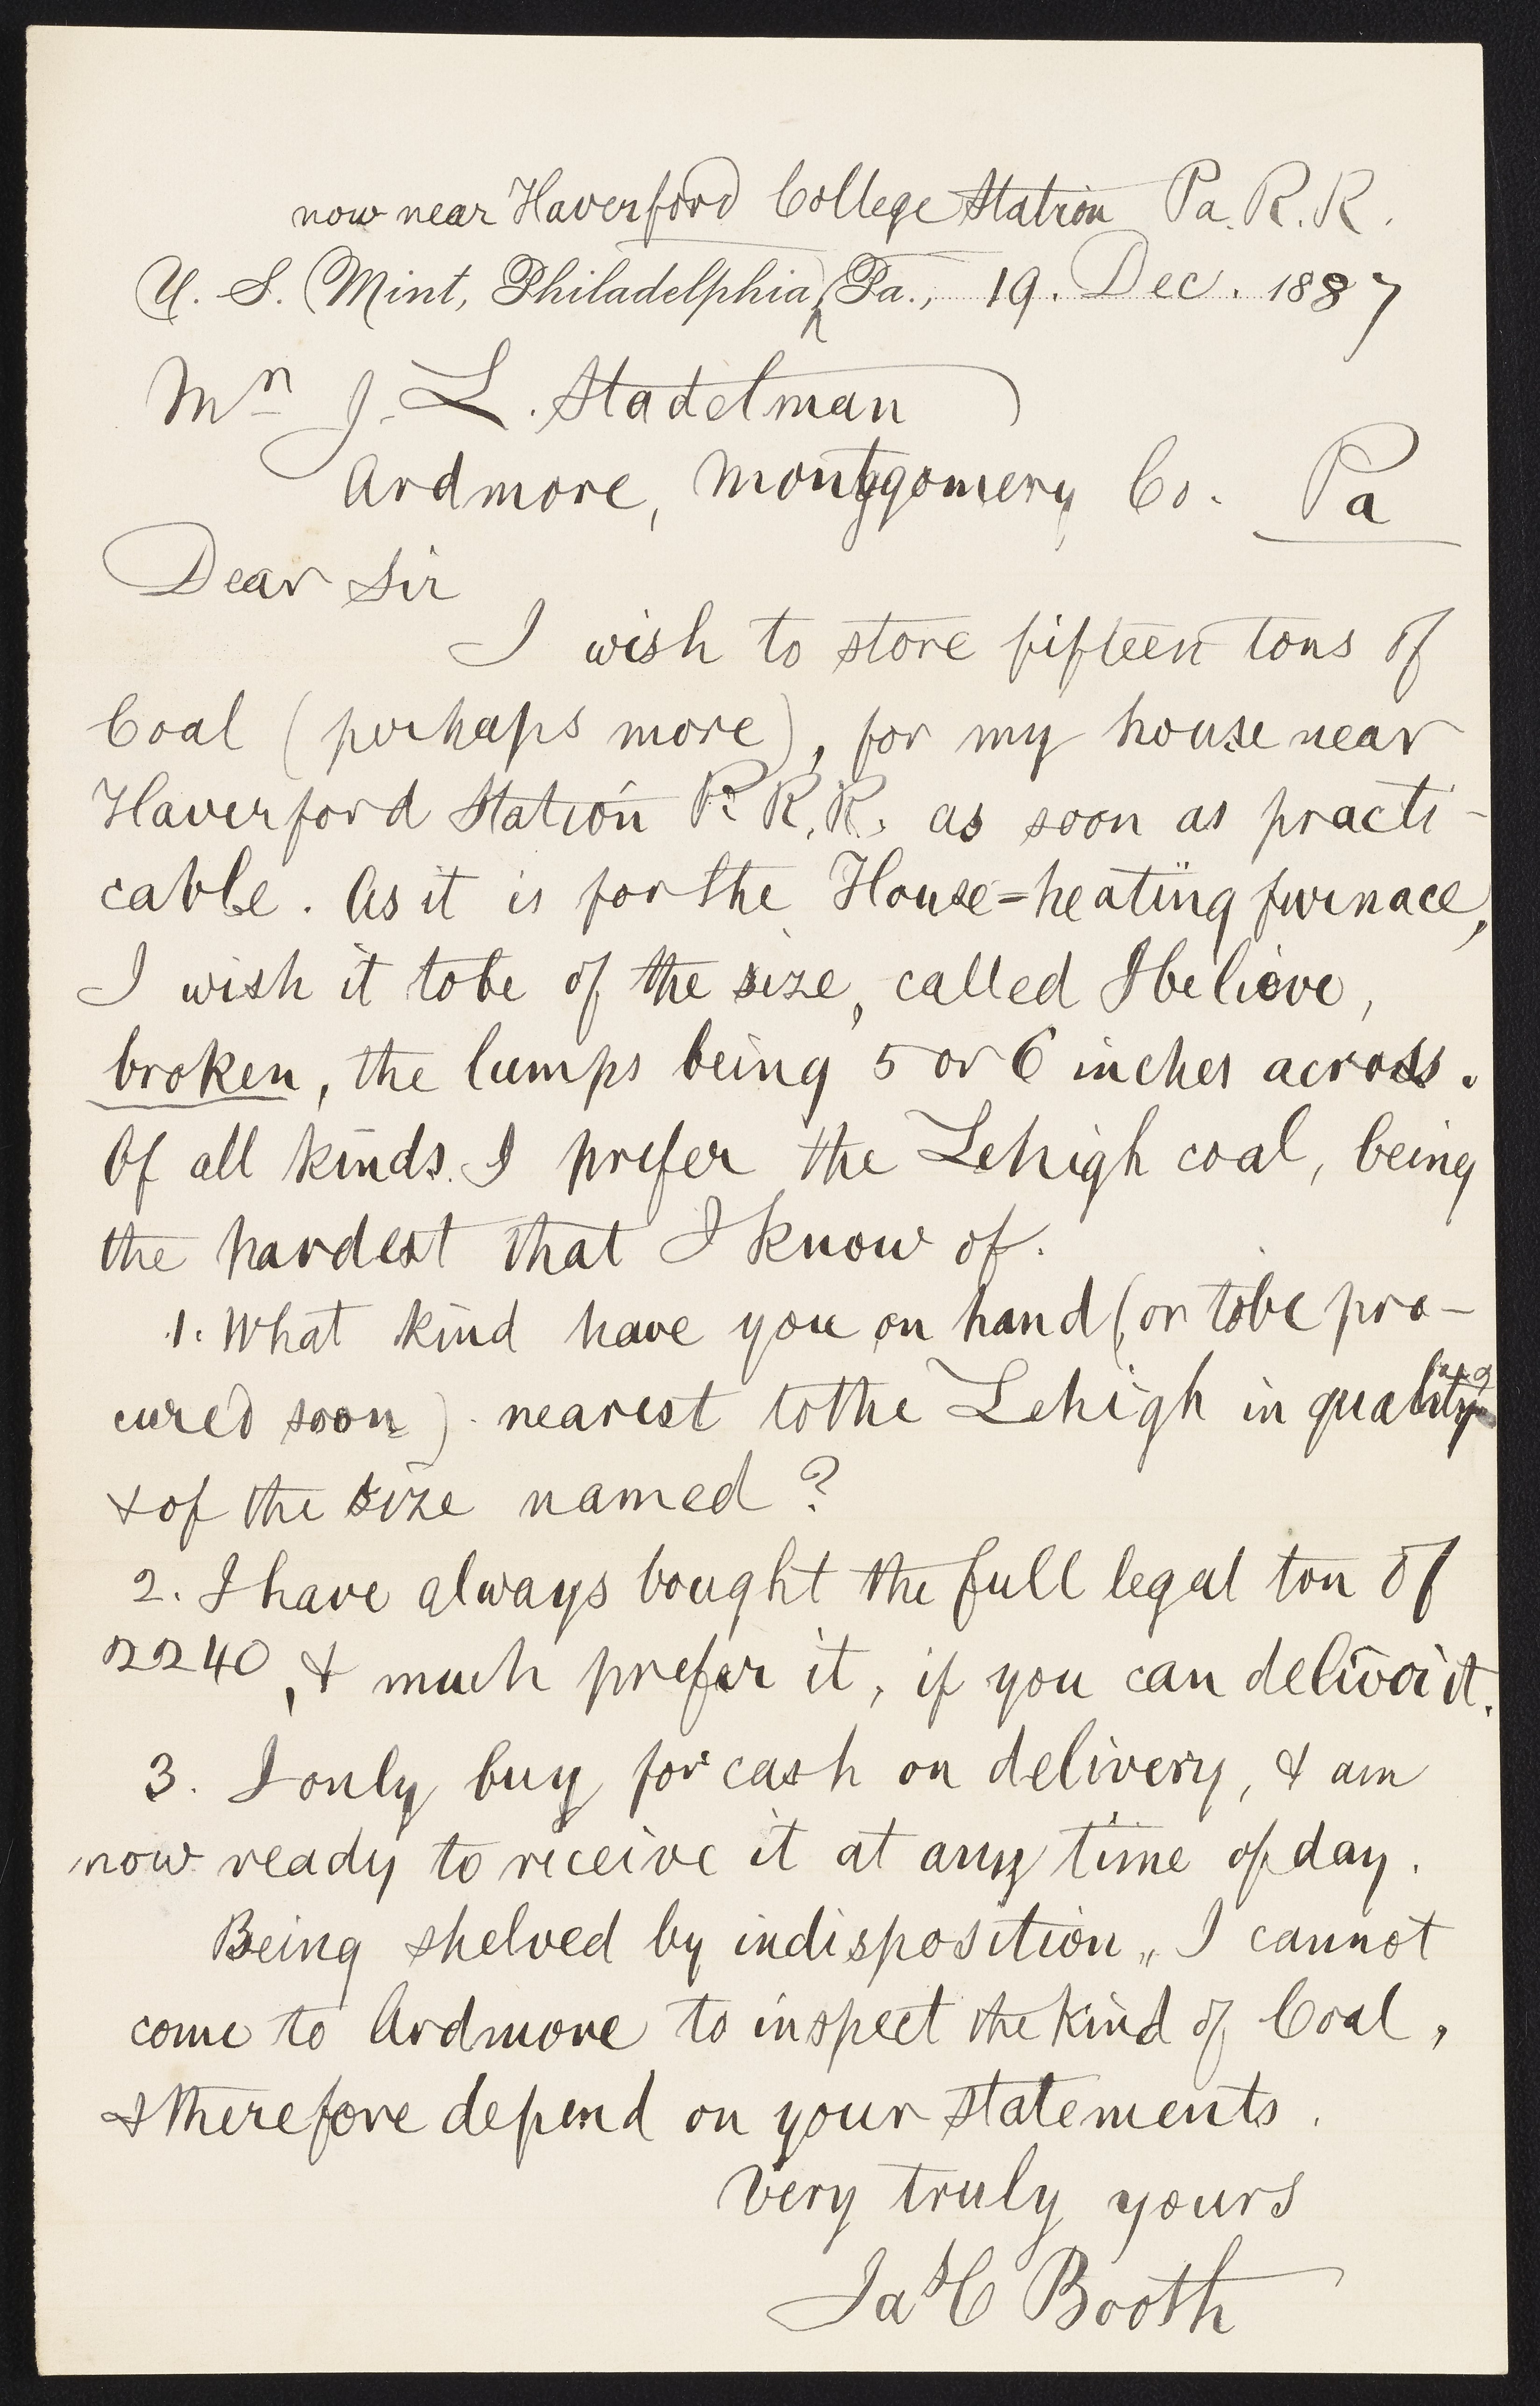 now near Haverford College Station Pa. R. R.
U. S. Mint, Philadelphia, Pa., 19. Dec. 1887
Mr J. L. Stadelman
Ardmore, Montgomery Co. Pa
Dear Sir
I wish to store fifteen tons of
Coal (perhaps more), for my house near
Haverford Station P. R. R. as soon as practi-
cable. As it is for the House=heating furnace,
I wish it to be of the size, called I believe,
broken, the lumps being 5 or 6 inches across.
Of all kinds. I prefer the Lehigh coal, being
the hardest that I know of.
1. What kind have you on hand (or to be pro-
cured soon) nearest to the Lehigh in quality
& of the size named?
2. I have always bought the full legal ton of
2240, & much prefer it, if you can deliver it.
3. I only buy for cash on delivery, & am
now ready to receive it at any time of day.
Being shelved by indisposition, I cannot
come to Ardmore to inspect the kind of Coal,
& therefore depend on your statements.
Very truly yours
Jas C Booth